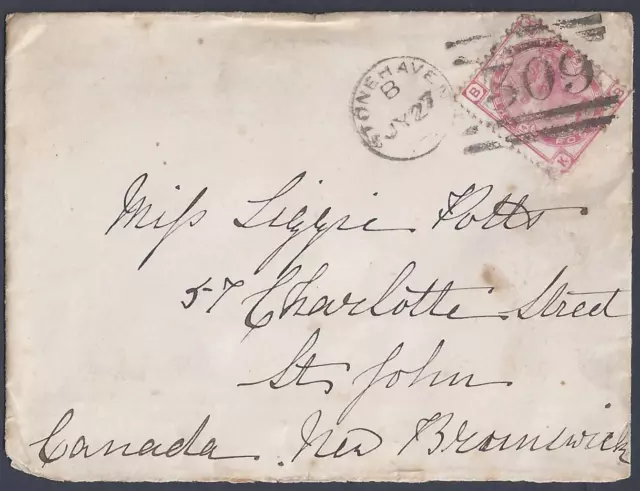 STONEHAVEN
B
JY 27
309
B
K
Miss Lizzie Potts
57 Charlotte Street
St John
Canada. New Brunswick